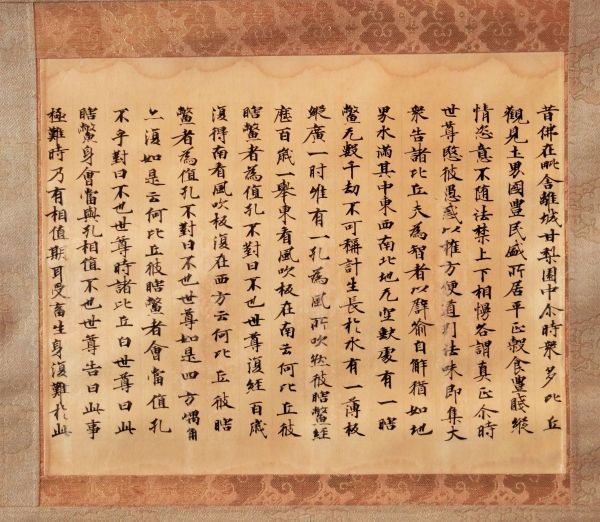 昔佛在毗舍離城甘梨園中尒時衆多比丘
觀見土界國豊民盛所居平𠀤穀食豊賤縱
情恣意不随法禁上下相慢各謂真正尒時
世尊愍彼愚惑以權方便道利法味即集大
衆告諸比丘夫為智者以譬喻自解猶如地
界水滿其中東西南北地无空缺處有一瞎
鼈无數千劫不可稱計生長於水有一薄板
縱廣一肘唯有一孔為風所吹然彼瞎鼈經
歷百歳一舉東看風吹板在南云何比丘彼
瞎鼈者為值孔不對曰不也世尊復経百歳
復得南看風吹板復在西方云何比丘彼瞎
鼈者為值孔不對曰不也世尊如是四方隅角
亦復如是云何比丘彼瞎鼈者會當值孔
不乎對曰不也世尊時諸比丘白世尊曰此
瞎鼈身會當與孔相值不也世尊告曰此事
極難時乃有相值期耳受畜生身復難於此